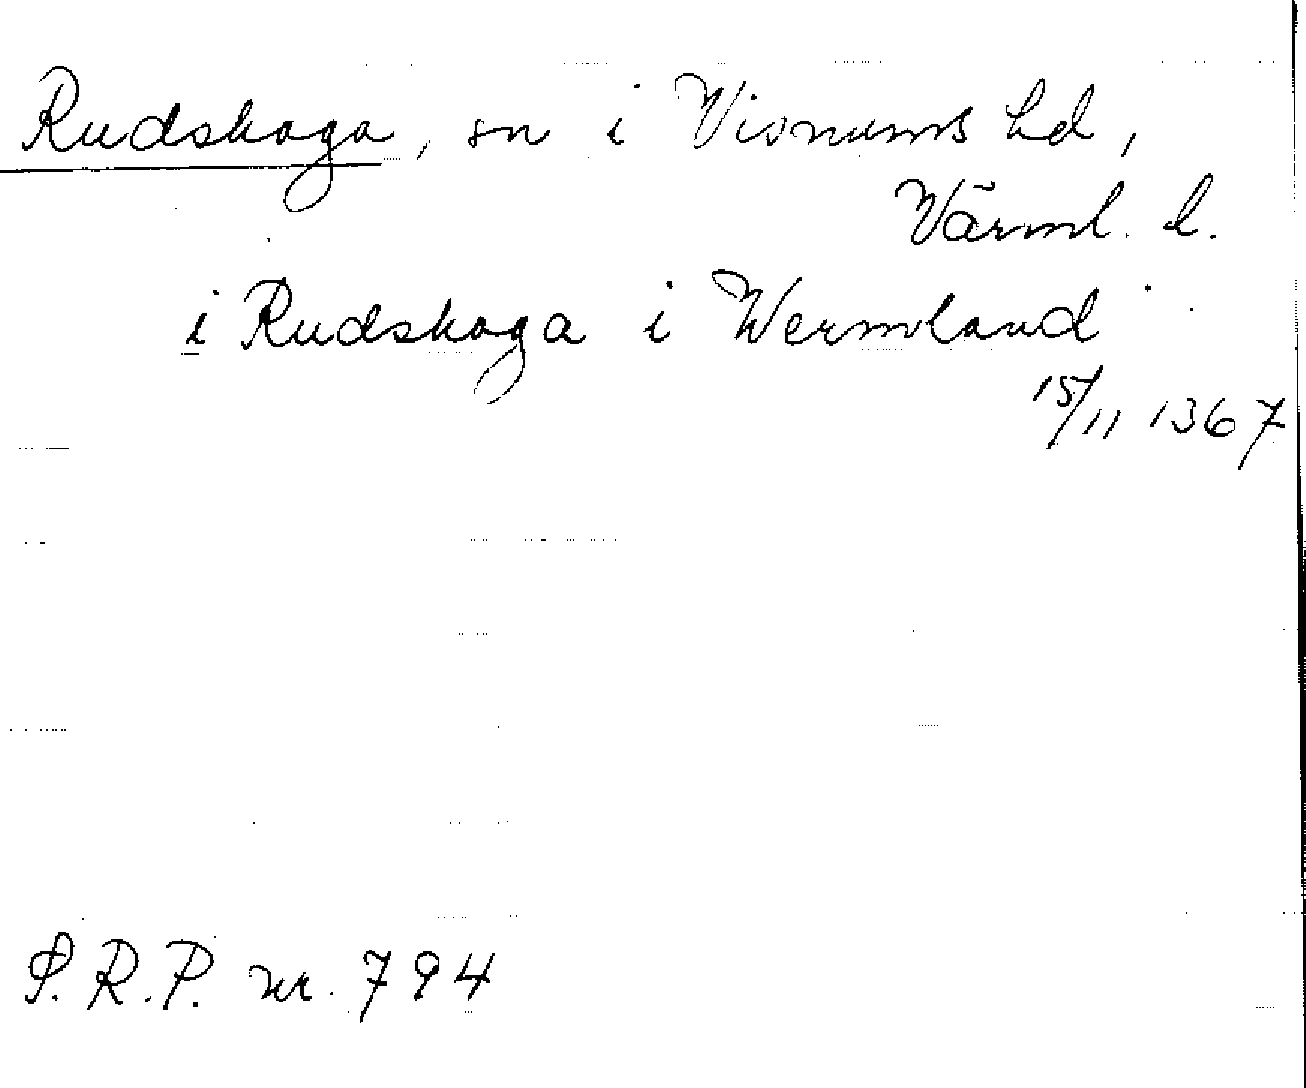 Rudskoga, sn i Visnums hd,
Värml. l.
i Rudskoga i Wermoland
15/11 1367
S.R.P. nr. 794